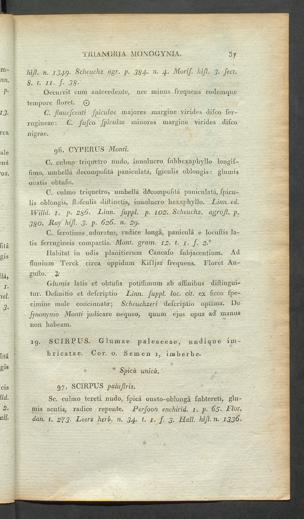 TRIANDRIA MONOGYNIA. 37
hist. n. 1349. Scheuchz agr. p. 384. n. 4. Moris. hist. 3. sect.
8. t. 11. f. 38.
Occurrit cum antecedente, nec minus frequens eodemque
tempore floret. ⊙
C. flavescenti spiculae majores margine virides disco fer-
rugineae: C. fusco spiculae minores margine virides disco
nigrae.
96. CYPERUS Monti.
C. culmo triquetro nudo, involucro subhexaphyllo longis-
simo, umbellâ decompositâ paniculatâ, spiculis oblongis: glumis
ovatis obtusis.
C. culmo triquetro, umbellâ decompositâ paniculatâ, spicu-
lis oblongis, flosculis distinctis, involucro hexaphyllo. Linn. ed.
Willd. 1. p. 286. Linn. suppl. p. 102. Scheuchz. agrost. p.
380. Ray hist. 3. p. 626. n. 29.
C. serotinus odoratus, radice longâ, paniculâ e locustis la-
tis ferrugineis compactis. Mont. gram. 12. t. 1. f. 2.
Habitat in udis planitierum Caucaso subjacentium. Ad
fluvium Terek circa oppidum Kisljar frequens. Floret Au-
gusto. ♃
Glumis latis et obtusis potissimum ab affinibus distingui-
tur. Definitio et descriptio Linn. suppl. loc. cit. ex sicco spe-
cimine male concinnatae; Scheuchzeri descriptio optima. De
synonymo Monti judicare nequeo, quum ejus opus ad manus
non habeam.
19. SCIRPUS. Glumae paleaceae, undique im-
bricatae. Cor. 0. Semen 1, imberbe.
* Spicâ unicâ.
97. SCIRPUS palustris.
Sc. culmo tereti nudo, spicâ ovato-oblongâ subtereti, glu-
mis acutis, radice repente. Persoon enchirid. 1. p. 65. Flor.
dan. t. 273. Leers herb. n. 34. t. 1. f. 3. Hall. hist. n. 1336.